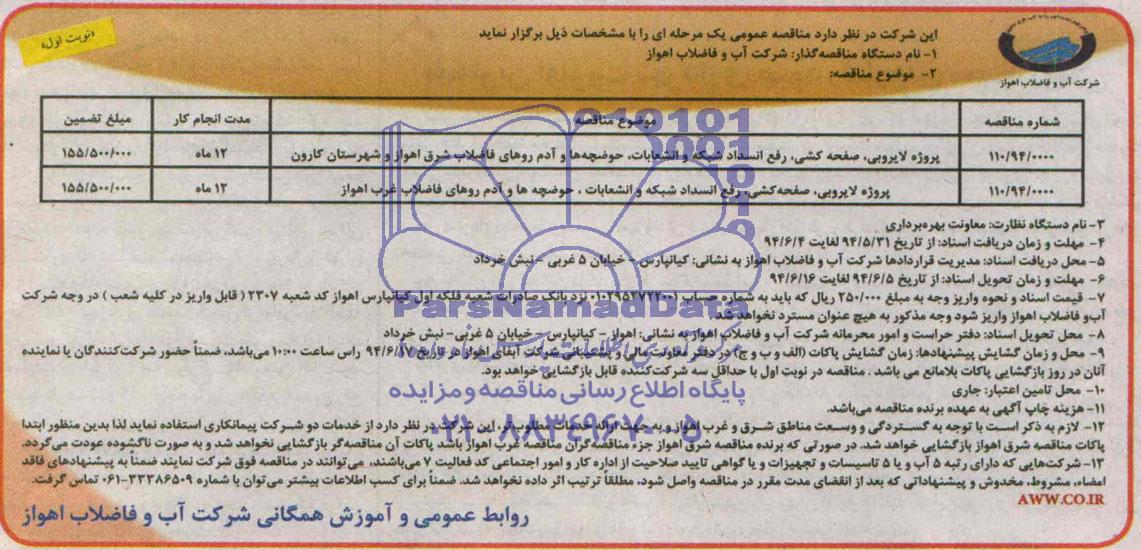 «نوبت اول»
شرکت آب و فاضلاب اهواز
این شرکت در نظر دارد مناقصه عمومی یک مرحله ای را با مشخصات ذیل برگزار نماید
۱- نام دستگاه مناقصه‌گذار: شرکت آب و فاضلاب اهواز
۲- موضوع مناقصه:
شماره مناقصه موضوع مناقصه مدت انجام کار مبلغ تضمین
۱۱۰/۹۴/۰۰۰۰ پروژه لایروبی، صفحه کشی، رفع انسداد شبکه و انشعابات، حوضچه‌ها و آدم روهای فاضلاب شرق اهواز و شهرستان کارون ۱۲ ماه ۱۵۵/۵۰۰/۰۰۰
۱۱۰/۹۴/۰۰۰۰ پروژه لایروبی، صفحه‌کشی، رفع انسداد شبکه و انشعابات ، حوضچه ها و آدم روهای فاضلاب غرب اهواز ۱۲ ماه ۱۵۵/۵۰۰/۰۰۰
۳- نام دستگاه نظارت: معاونت بهره‌برداری
۴- مهلت و زمان دریافت اسناد: از تاریخ ۹۴/۵/۳۱ لغایت ۹۴/۶/۴
۵- محل دریافت اسناد: مدیریت قراردادها شرکت آب و فاضلاب اهواز به نشانی: کیانپارس - خیابان ۵ غربی - نبش خرداد
۶- مهلت و زمان تحویل اسناد: از تاریخ ۹۴/۶/۵ لغایت ۹۴/۶/۱۶
۷- قیمت اسناد و نحوه واریز وجه به مبلغ ۲۵۰/۰۰۰ ریال که باید به شماره حساب ۰۱۰۲۹۵۲۷۷۲۰۰۱ نزد بانک صادرات شعبه فلکه اول کیانپارس اهواز کد شعبه ۲۳۰۷ ( قابل واریز در کلیه شعب ) در وجه شرکت
آب و فاضلاب اهواز واریز شود وجه مذکور به هیچ عنوان مسترد نخواهد شد.
۸- محل تحویل اسناد: دفتر حراست و امور محرمانه شرکت آب و فاضلاب اهواز به نشانی: اهواز - کیانپارس - خیابان ۵ غربی- نبش خرداد
۹- محل و زمان گشایش پیشنهادها: زمان گشایش پاکات (الف و ب و ج) در دفتر معاونت مالی و پشتیبانی شرکت آبفای اهواز در تاریخ ۹۴/۶/۱۷ راس ساعت ۱۰:۰۰ می‌باشد، ضمناً حضور شرکت‌کنندگان یا نماینده
آنان در روز بازگشایی پاکات بلامانع می باشد . مناقصه در نوبت اول با حداقل سه شرکت‌کننده قابل بازگشایی خواهد بود.
۱۰- محل تامین اعتبار: جاری
۱۱- هزینه چاپ آگهی به عهده برنده مناقصه می‌باشد.
۱۲- لازم به ذکر است با توجه به گستردگی و وسعت مناطق شرق و غرب اهواز و به جهت ارائه خدمات مطلوب‌تر، این شرکت در نظر دارد از خدمات دو شرکت پیمانکاری استفاده نماید لذا بدین منظور ابتدا
پاکات مناقصه شرق اهواز بازگشایی خواهد شد. در صورتی که برنده مناقصه شرق اهواز جزء مناقصه‌گران مناقصه غرب اهواز باشد پاکات آن مناقصه‌گر بازگشایی نخواهد شد و به صورت ناگشوده عودت می‌گردد.
۱۳- شرکت‌هایی که دارای رتبه ۵ آب و یا ۵ تاسیسات و تجهیزات و یا گواهی تایید صلاحیت از اداره کار و امور اجتماعی کد فعالیت ۷ می‌باشند، می‌توانند در مناقصه فوق شرکت نمایند ضمناً به پیشنهادهای فاقد
امضاء، مشروط، مخدوش و پیشنهاداتی که بعد از انقضای مدت مقرر در مناقصه واصل شود، مطلقاً ترتیب اثر داده نخواهد شد. ضمناً برای کسب اطلاعات بیشتر می‌توان با شماره ۳۳۳۸۶۵۰۹-۰۶۱ تماس گرفت.
AWW.CO.IR
روابط عمومی و آموزش همگانی شرکت آب و فاضلاب اهواز
ParsNamadData
پایگاه اطلاع رسانی مناقصه و مزایده
۰۲۱-۸۸۳۴۹۶۷۰-۵